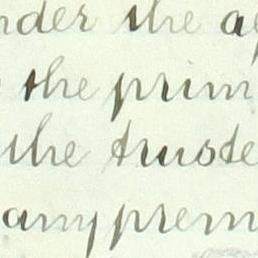 nder the ag
the prim
the truste
any prem